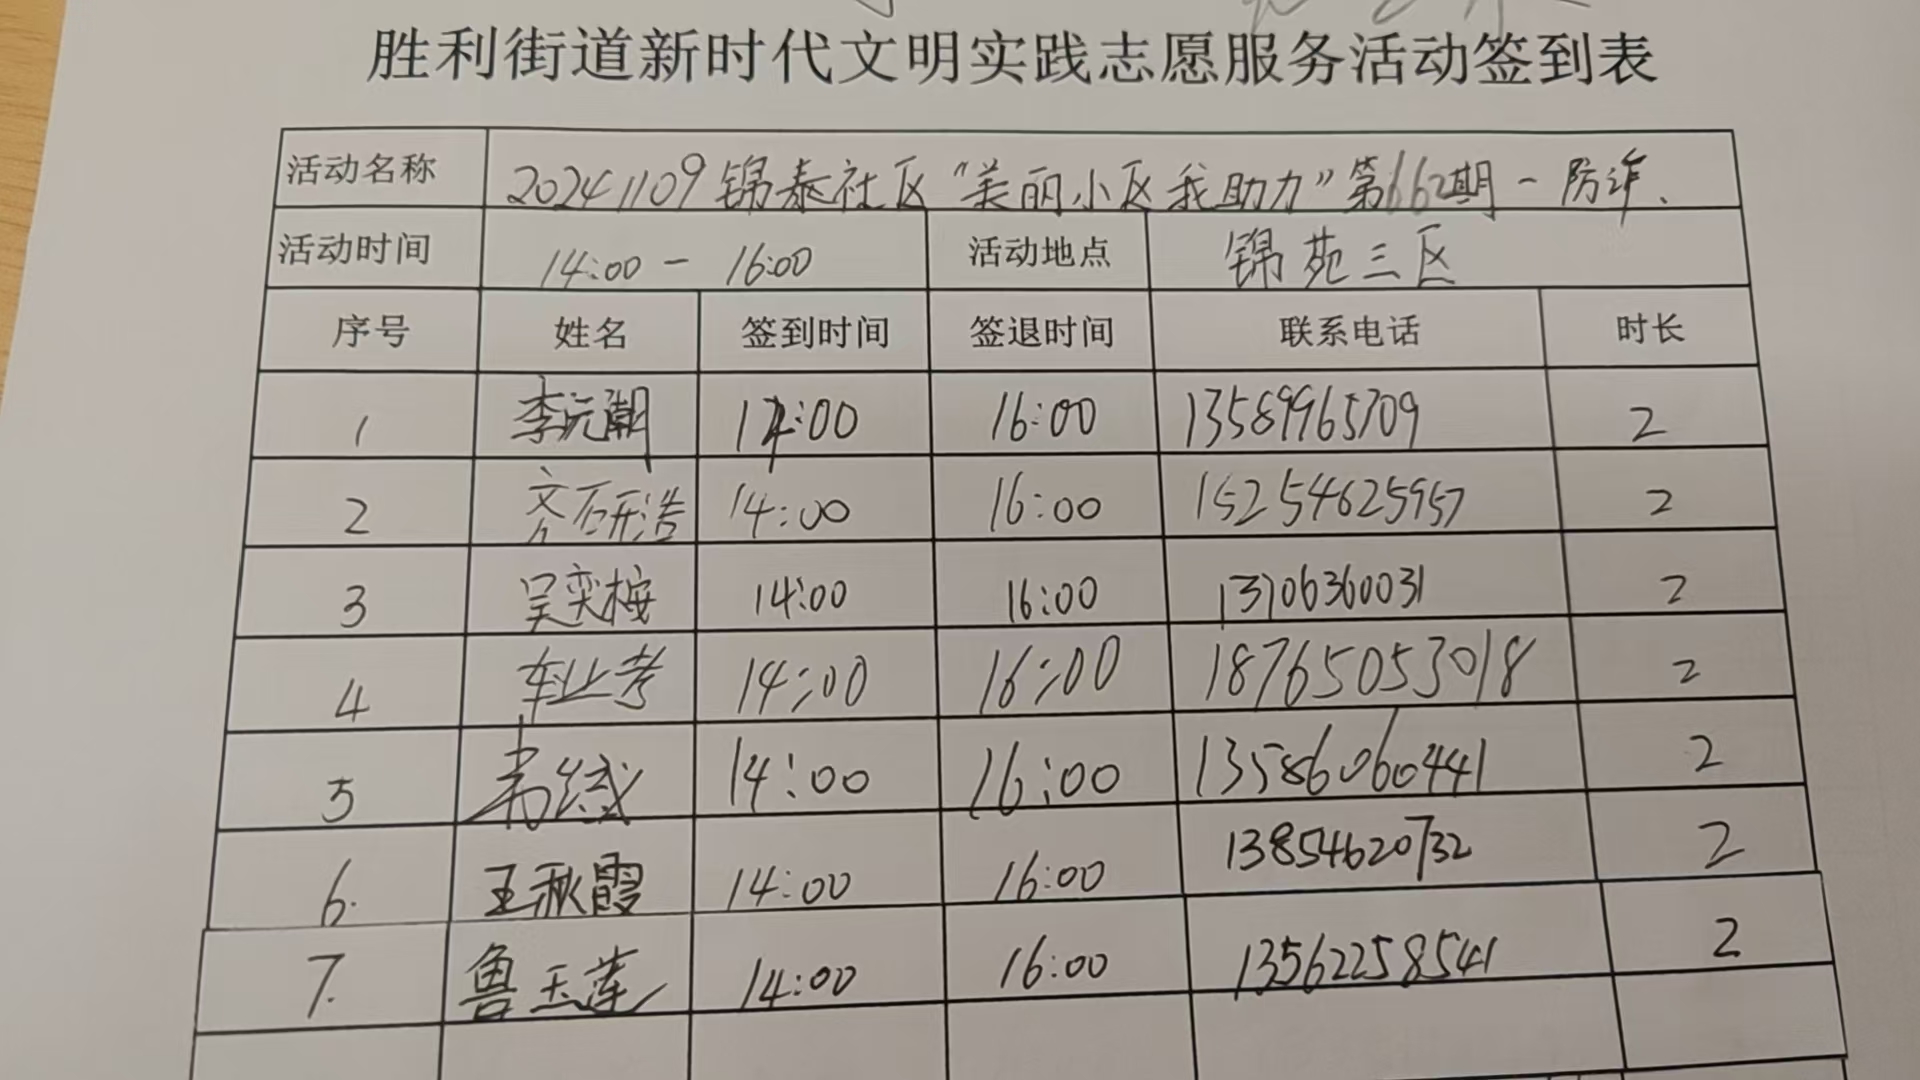 胜利街道新时代文明实践志愿服务活动签到表
活动名称 20241109锦泰社区“美丽小区我助力”第662期-防诈、
活动时间 14:00 - 16:00 活动地点 锦苑三区
序号 姓名 签到时间 签退时间 联系电话 时长
1 李沅潮 14:00 16:00 13589965709 2
2 齐研浩 14:00 16:00 15254625957 2
3 吴奕桉 14:00 16:00 13706360031 2
4 车业考 14:00 16:00 18765053018 2
5 14:00 16:00 13586060441 2
6. 王秋霞 14:00 16:00 13854620732 2
7. 鲁玉莲 14:00 16:00 13562258541 2